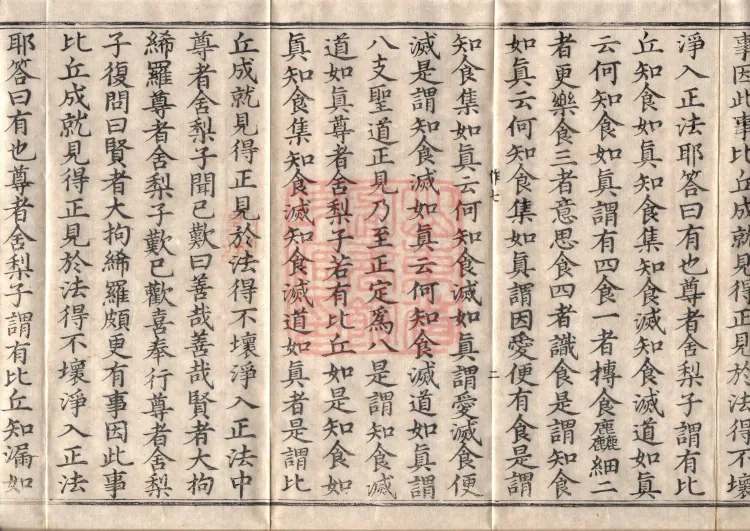 事因此事比丘成就見得正見於法得不壞
淨入正法耶答曰有也尊者舍梨子謂有比
丘知食如真知食集知食滅知食滅道如真
云何知食如真謂有四食一者摶食麤細二
者更樂食三者意思食四者識食是謂知食
如真云何知食集如真謂因愛便有食是謂
作七
二
知食集如真云何知食滅如真謂愛滅食便
滅是謂知食滅如真云何知食滅道如真謂
八支聖道正見乃至正定為八是謂知食滅
道如真尊者舍梨子若有比丘如是知食如
真知食集知食滅知食滅道如真者是謂比
丘成就見得正見於法得不壞淨入正法中
尊者舍梨子聞已歎曰善哉善哉賢者大拘
絺羅尊者舍梨子歎已歡喜奉行尊者舍梨
子復問曰賢者大拘絺羅頗更有事因此事
比丘成就見得正見於法得不壞淨入正法
耶答曰有也尊者舍梨子謂有比丘知漏如